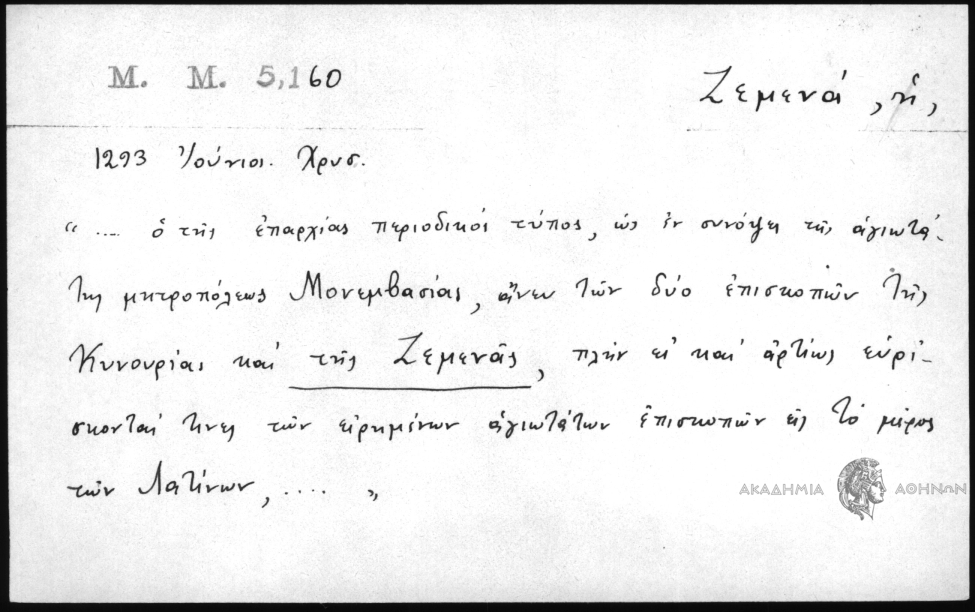 Μ. Μ. 5,160
Ζεμενά, ἡ,
1293 Ἰούνιος. Χρυσ.
".... ὁ τῆς ἐπαρχίας περιοδικὸς τύπος, ὡς ἐν συνόψει τῆς ἁγιωτά-
της μητροπόλεως Μονεμβασίας, ἄνευ τῶν δύο ἐπισκοπῶν τῆς
Κυνουρίας καὶ τῆς Ζεμενᾶς, πλὴν εἰ καὶ ἀρτίως εὑρί-
σκονταί τινες τῶν εἰρημένων ἁγιωτάτων ἐπισκοπῶν εἰς τὸ μέρος
τῶν Λατίνων, .... "
ΑΚΑΔΗΜΙΑ ΑΘΗΝΩΝ